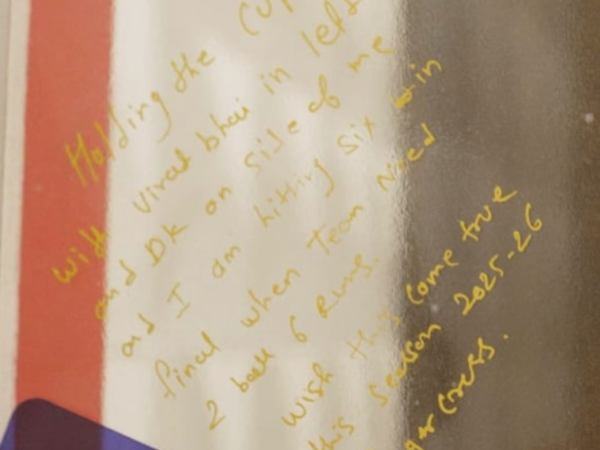 Holding the CUP
with Virat bhai in left
and DK on side of me
and I am hitting six in
final when Team Need
2 ball 6 Runs.
wish this come true
this season 2025-26